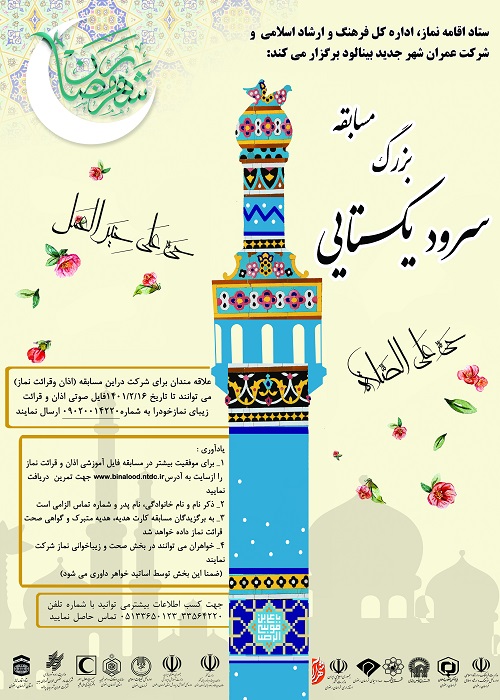 ستاد اقامه نماز، اداره کل فرهنگ و ارشاد اسلامی و
شرکت عمران شهر جدید بینالود برگزار می کند:
شهر رمضان
مسابقه
بزرگ
سرود یکستایی
حی علی خیر العمل
حی علی الصلاة
علاقه مندان برای شرکت دراین مسابقه (اذان وقرائت نماز)
می توانند تا تاریخ ۱۴۰۱/۲/۱۶فایل صوتی اذان و قرائت
زیبای نمازخودرا به شماره۰۹۰۲۰۰۱۴۲۲۰ ارسال نمایند
یادآوری :
۱_ برای موفقیت بیشتر در مسابقه فایل آموزشی اذان و قرائت نماز
را ازسایت به آدرسwww.binalood.ntdc.ir جهت تمرین دریافت
نمایید
۲_ ذکر نام و نام خانوادگی، نام پدر و شماره تماس الزامی است
۳_ به برگزیدگان مسابقه کارت هدیه، هدیه متبرک و گواهی صحت
قرائت نماز داده خواهد شد
۴_ خواهران می توانند در بخش صحت و زیباخوانی نماز شرکت
نمایند
(ضمنا این بخش توسط اساتید خواهر داوری می شود)
جهت کسب اطلاعات بیشترمی توانید با شماره تلفن
۰۵۱۳۳۶۵۰۱۲۳_۳۳۵۶۴۲۲۰ تماس حاصل نمایید